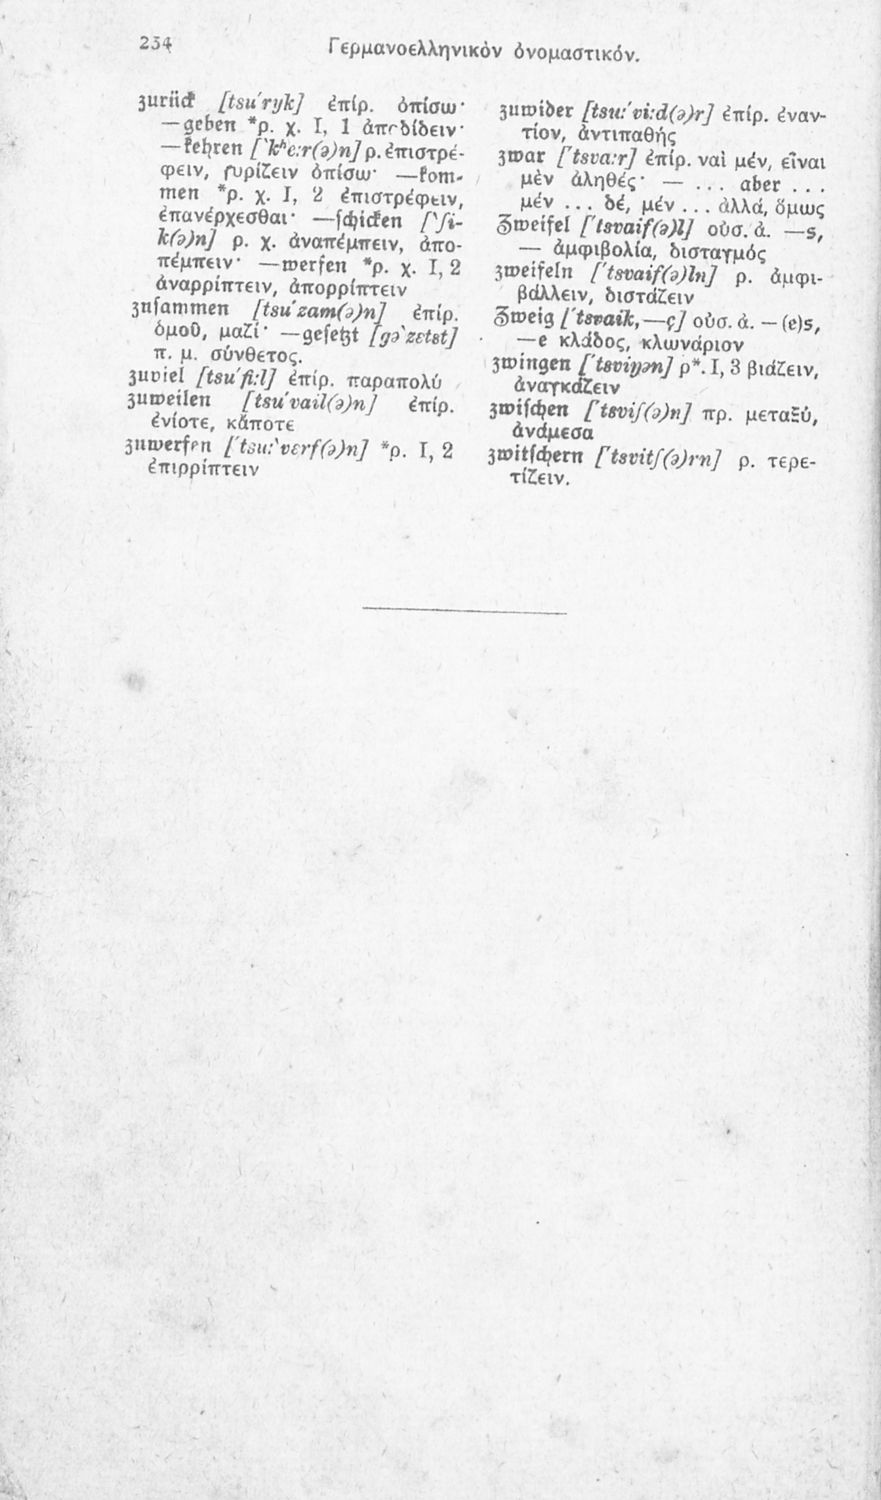 254
Γερμανοελληνικὸν ὀνομαστικόν.
zurück [tsu'ryk] ἐπίρ. ὀπίσω·
—geben *ρ. χ. I, 1 ἀποδίδειν·
—kehren ['kʰe:r(ə)n] ρ. ἐπιστρέ-
φειν, γυρίζειν ὀπίσω· —kom-
men *ρ. χ. I, 2 ἐπιστρέφειν,
ἐπανέρχεσθαι· —schicken ['ʃi-
k(ə)n] ρ. χ. ἀναπέμπειν, ἀπο-
πέμπειν· —werfen *ρ. χ. I, 2
ἀναρρίπτειν, ἀπορρίπτειν
zusammen [tsu'zam(ə)n] ἐπίρ.
ὁμοῦ, μαζί· —gesetzt [gə'zɛtst]
π. μ. σύνθετος.
zuviel [tsu'fi:l] ἐπίρ. παραπολύ
zuweilen [tsu'vail(ə)n] ἐπίρ.
ἐνίοτε, κἄποτε
zuwerfen ['tsu:'vɛrf(ə)n] *ρ. I, 2
ἐπιρρίπτειν
zuwider [tsu:'vi:d(ə)r] ἐπίρ. ἐναν-
τίον, ἀντιπαθής
zwar ['tsva:r] ἐπίρ. ναὶ μέν, εἶναι
μὲν ἀληθές· — ... aber ...
μέν ... δέ, μέν ... ἀλλά, ὅμως
Zweifel ['tsvaif(ə)l] οὐσ. ἀ. —s,
— ἀμφιβολία, δισταγμός
zweifeln ['tsvaif(ə)ln] ρ. ἀμφι-
βάλλειν, διστάζειν
Zweig ['tsvaik, —ç] οὐσ. ἀ. —(e)s,
—e κλάδος, κλωνάριον
zwingen ['tsviŋən] ρ*. I, 3 βιάζειν,
ἀναγκάζειν
zwischen ['tsviʃ(ə)n] πρ. μεταξύ,
ἀνάμεσα
zwitschern ['tsvitʃ(ə)rn] ρ. τερε-
τίζειν.